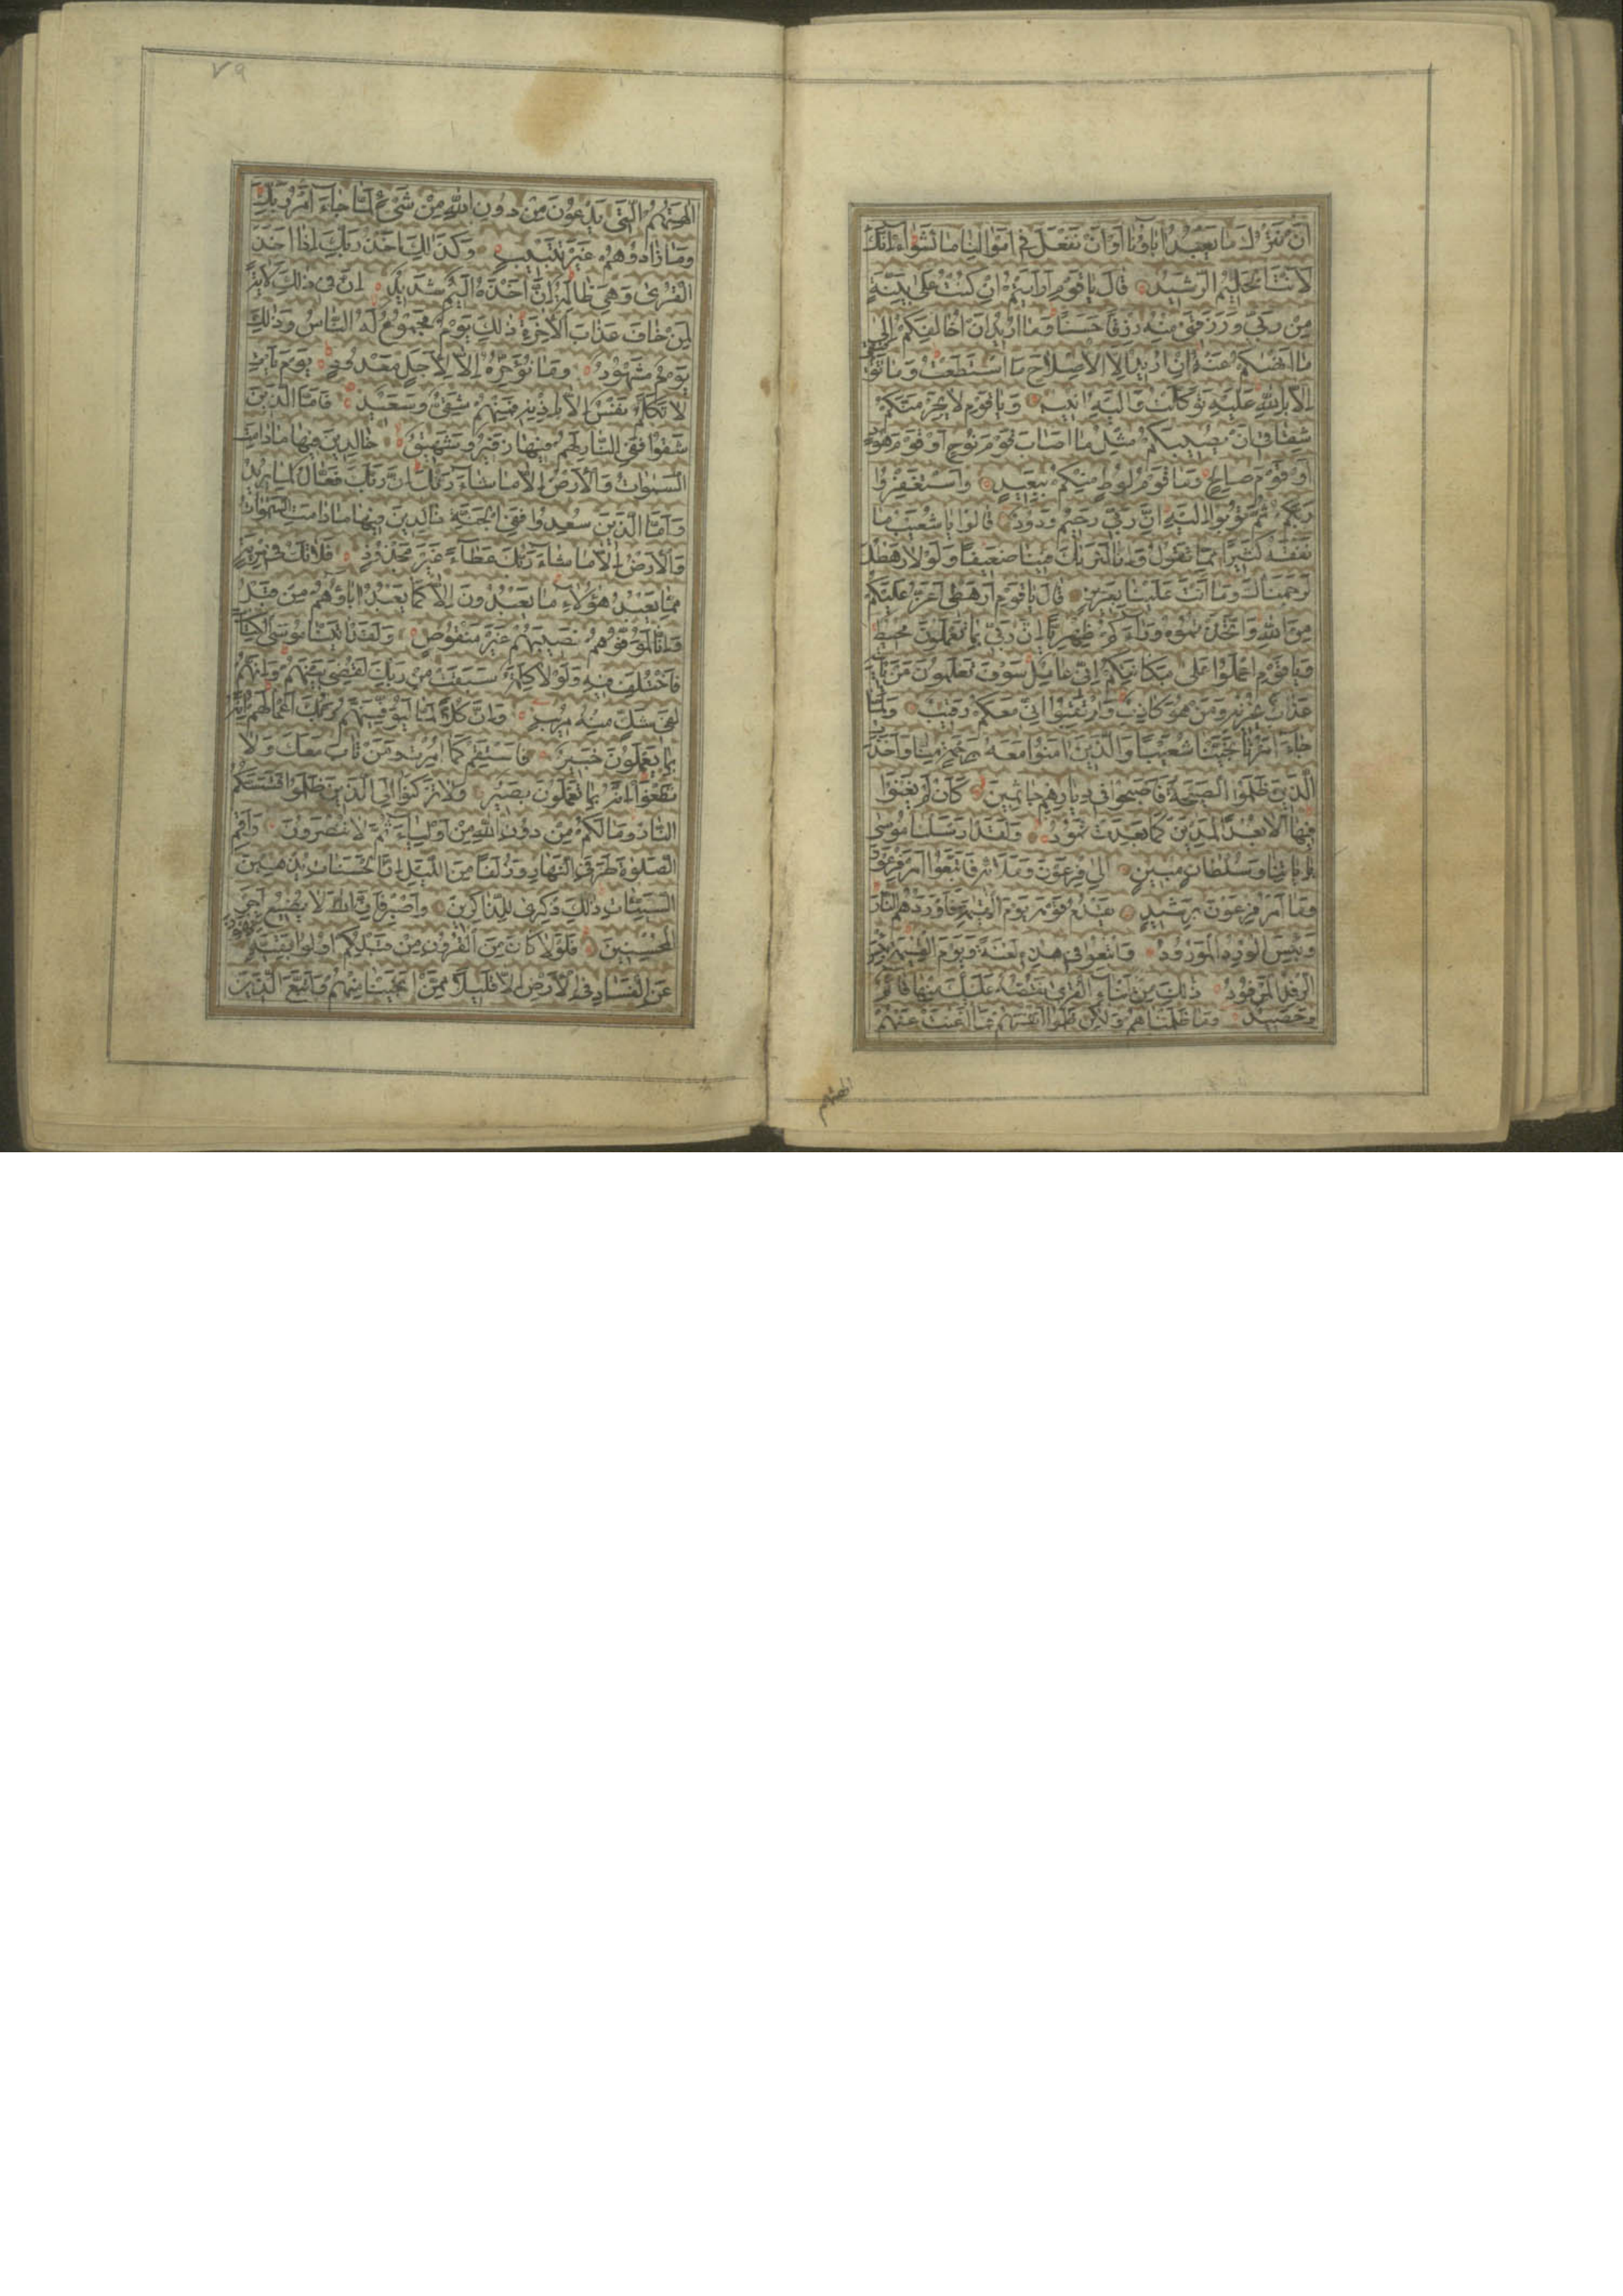 أَنْ نَتْرُكَ مَا يَعْبُدُ اٰبَاؤُنَا أَوْ أَنْ نَفْعَلَ فِي أَمْوَالِنَا مَا نَشٰؤُا إِنَّكَ
لَأَنْتَ الْحَلِيمُ الرَّشِيدُ قَالَ يَا قَوْمِ أَرَأَيْتُمْ إِنْ كُنْتُ عَلَى بَيِّنَةٍ
مِنْ رَبِّي وَرَزَقَنِي مِنْهُ رِزْقًا حَسَنًا وَمَا أُرِيدُ أَنْ أُخَالِفَكُمْ إِلَى
مَا أَنْهٰيكُمْ عَنْهُ إِنْ أُرِيدُ إِلَّا الْإِصْلَاحَ مَا اسْتَطَعْتُ وَمَا تَوْفِيقِي
إِلَّا بِاللَّهِ عَلَيْهِ تَوَكَّلْتُ وَإِلَيْهِ أُنِيبُ وَيَا قَوْمِ لَا يَجْرِمَنَّكُمْ
شِقَاقِي أَنْ يُصِيبَكُمْ مِثْلُ مَا أَصَابَ قَوْمَ نُوحٍ أَوْ قَوْمَ هُودٍ
أَوْ قَوْمَ صَالِحٍ وَمَا قَوْمُ لُوطٍ مِنْكُمْ بِبَعِيدٍ وَاسْتَغْفِرُوا
رَبَّكُمْ ثُمَّ تُوبُوا إِلَيْهِ إِنَّ رَبِّي رَحِيمٌ وَدُودٌ قَالُوا يَا شُعَيْبُ مَا
نَفْقَهُ كَثِيرًا مِمَّا تَقُولُ وَإِنَّا لَنَرٰيكَ فِينَا ضَعِيفًا وَلَوْلَا رَهْطُكَ
لَرَجَمْنَاكَ وَمَا أَنْتَ عَلَيْنَا بِعَزِيزٍ قَالَ يَا قَوْمِ أَرَهْطِي أَعَزُّ عَلَيْكُمْ
مِنَ اللَّهِ وَاتَّخَذْتُمُوهُ وَرَاءَكُمْ ظِهْرِيًّا إِنَّ رَبِّي بِمَا تَعْمَلُونَ مُحِيطٌ
وَيَا قَوْمِ اعْمَلُوا عَلَى مَكَانَتِكُمْ إِنِّي عَامِلٌ سَوْفَ تَعْلَمُونَ مَنْ يَأْتِيهِ
عَذَابٌ يُخْزِيهِ وَمَنْ هُوَ كَاذِبٌ وَارْتَقِبُوا إِنِّي مَعَكُمْ رَقِيبٌ وَلَمَّا
جَاءَ أَمْرُنَا نَجَّيْنَا شُعَيْبًا وَالَّذِينَ اٰمَنُوا مَعَهُ بِرَحْمَةٍ مِنَّا وَأَخَذَتِ
الَّذِينَ ظَلَمُوا الصَّيْحَةُ فَأَصْبَحُوا فِي دِيَارِهِمْ جَاثِمِينَ كَأَنْ لَمْ يَغْنَوْا
فِيهَا أَلَا بُعْدًا لِمَدْيَنَ كَمَا بَعِدَتْ ثَمُودُ وَلَقَدْ أَرْسَلْنَا مُوسٰى
بِاٰيَاتِنَا وَسُلْطَانٍ مُبِينٍ إِلَى فِرْعَوْنَ وَمَلَائِهِ فَاتَّبَعُوا أَمْرَ فِرْعَوْنَ
وَمَا أَمْرُ فِرْعَوْنَ بِرَشِيدٍ يَقْدُمُ قَوْمَهُ يَوْمَ الْقِيٰمَةِ فَأَوْرَدَهُمُ النَّارَ
وَبِئْسَ الْوِرْدُ الْمَوْرُودُ وَأُتْبِعُوا فِي هٰذِهِ لَعْنَةً وَيَوْمَ الْقِيٰمَةِ بِئْسَ
الرِّفْدُ الْمَرْفُودُ ذٰلِكَ مِنْ أَنْبَاءِ الْقُرَى نَقُصُّهُ عَلَيْكَ مِنْهَا قَائِمٌ
وَحَصِيدٌ وَمَا ظَلَمْنَاهُمْ وَلٰكِنْ ظَلَمُوا أَنْفُسَهُمْ فَمَا أَغْنَتْ عَنْهُمْ
اٰلهتهم
٧٩
اٰلِهَتُهُمُ الَّتِي يَدْعُونَ مِنْ دُونِ اللَّهِ مِنْ شَيْءٍ لَمَّا جَاءَ أَمْرُ رَبِّكَ
وَمَا زَادُوهُمْ غَيْرَ تَتْبِيبٍ وَكَذٰلِكَ أَخْذُ رَبِّكَ إِذَا أَخَذَ
الْقُرٰى وَهِيَ ظَالِمَةٌ إِنَّ أَخْذَهُ أَلِيمٌ شَدِيدٌ إِنَّ فِي ذٰلِكَ لَاٰيَةً
لِمَنْ خَافَ عَذَابَ الْاٰخِرَةِ ذٰلِكَ يَوْمٌ مَجْمُوعٌ لَهُ النَّاسُ وَذٰلِكَ
يَوْمٌ مَشْهُودٌ وَمَا نُؤَخِّرُهُ إِلَّا لِأَجَلٍ مَعْدُودٍ يَوْمَ يَأْتِ
لَا تَكَلَّمُ نَفْسٌ إِلَّا بِإِذْنِهِ فَمِنْهُمْ شَقِيٌّ وَسَعِيدٌ فَأَمَّا الَّذِينَ
شَقُوا فَفِي النَّارِ لَهُمْ فِيهَا زَفِيرٌ وَشَهِيقٌ خَالِدِينَ فِيهَا مَا دَامَتِ
السَّمٰوَاتُ وَالْأَرْضُ إِلَّا مَا شَاءَ رَبُّكَ إِنَّ رَبَّكَ فَعَّالٌ لِمَا يُرِيدُ
وَأَمَّا الَّذِينَ سُعِدُوا فَفِي الْجَنَّةِ خَالِدِينَ فِيهَا مَا دَامَتِ السَّمٰوَاتُ
وَالْأَرْضُ إِلَّا مَا شَاءَ رَبُّكَ عَطَاءً غَيْرَ مَجْذُوذٍ فَلَا تَكُ فِي مِرْيَةٍ
مِمَّا يَعْبُدُ هٰؤُلَاءِ مَا يَعْبُدُونَ إِلَّا كَمَا يَعْبُدُ اٰبَاؤُهُمْ مِنْ قَبْلُ
وَإِنَّا لَمُوَفُّوهُمْ نَصِيبَهُمْ غَيْرَ مَنْقُوصٍ وَلَقَدْ اٰتَيْنَا مُوسَى الْكِتَابَ
فَاخْتُلِفَ فِيهِ وَلَوْلَا كَلِمَةٌ سَبَقَتْ مِنْ رَبِّكَ لَقُضِيَ بَيْنَهُمْ وَإِنَّهُمْ
لَفِي شَكٍّ مِنْهُ مُرِيبٍ وَإِنَّ كُلًّا لَمَّا لَيُوَفِّيَنَّهُمْ رَبُّكَ أَعْمَالَهُمْ إِنَّهُ
بِمَا يَعْمَلُونَ خَبِيرٌ فَاسْتَقِمْ كَمَا أُمِرْتَ وَمَنْ تَابَ مَعَكَ وَلَا
تَطْغَوْا إِنَّهُ بِمَا تَعْمَلُونَ بَصِيرٌ وَلَا تَرْكَنُوا إِلَى الَّذِينَ ظَلَمُوا فَتَمَسَّكُمُ
النَّارُ وَمَا لَكُمْ مِنْ دُونِ اللَّهِ مِنْ أَوْلِيَاءَ ثُمَّ لَا تُنْصَرُونَ وَأَقِمِ
الصَّلٰوةَ طَرَفَيِ النَّهَارِ وَزُلَفًا مِنَ اللَّيْلِ إِنَّ الْحَسَنَاتِ يُذْهِبْنَ
السَّيِّئَاتِ ذٰلِكَ ذِكْرٰى لِلذَّاكِرِينَ وَاصْبِرْ فَإِنَّ اللَّهَ لَا يُضِيعُ أَجْرَ
الْمُحْسِنِينَ فَلَوْلَا كَانَ مِنَ الْقُرُونِ مِنْ قَبْلِكُمْ أُولُوا بَقِيَّةٍ يَنْهَوْنَ
عَنِ الْفَسَادِ فِي الْأَرْضِ إِلَّا قَلِيلًا مِمَّنْ أَنْجَيْنَا مِنْهُمْ وَاتَّبَعَ الَّذِينَ